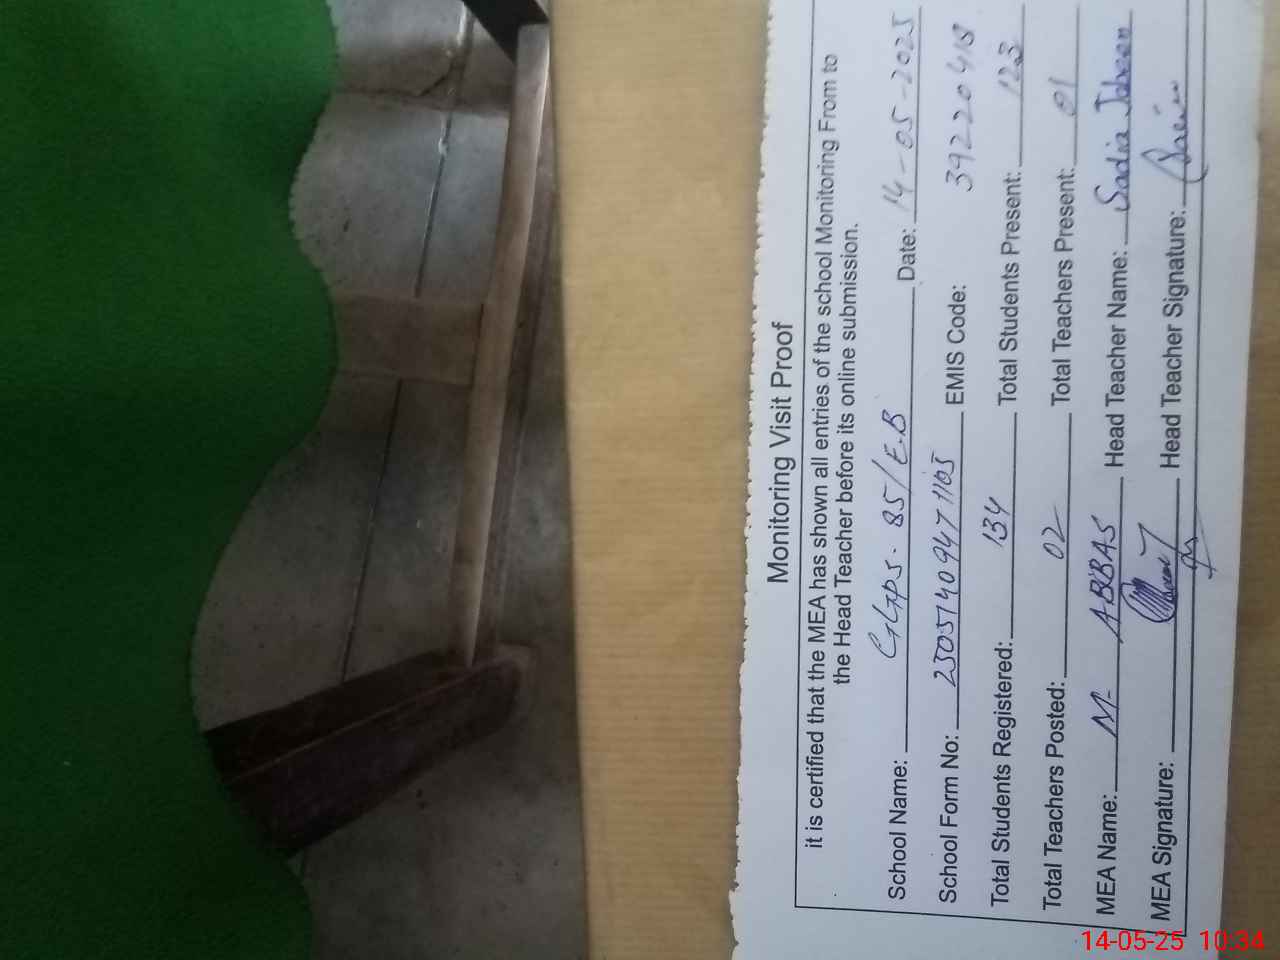 Monitoring Visit Proof
it is certified that the MEA has shown all entries of the school Monitoring From to
the Head Teacher before its online submission.
School Name: GGPS. 85/E.B Date: 14-05-2025
School Form No: 25051409471105 EMIS Code: 39220418
Total Students Registered: 134 Total Students Present: 123
Total Teachers Posted: 02 Total Teachers Present: 01
MEA Name: M- ABBAS Head Teacher Name: Sadia Jabeen
MEA Signature: Head Teacher Signature:
14-05-25 10:34